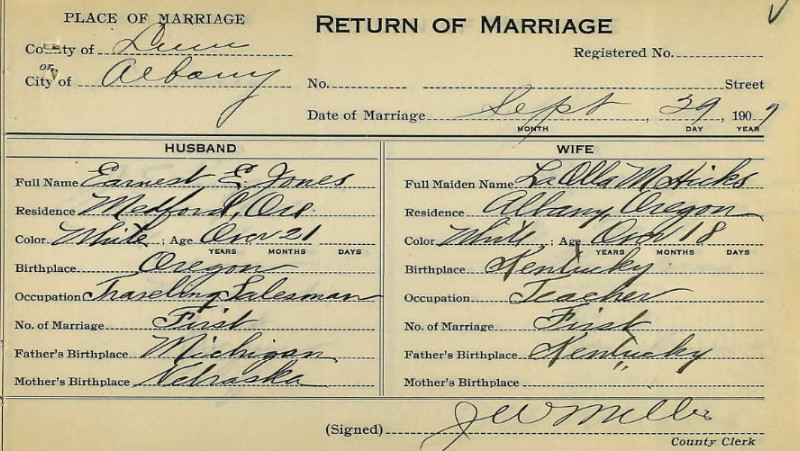 PLACE OF MARRIAGE
RETURN OF MARRIAGE
County of Linn
Registered No.
or
City of Albany
No. Street
Date of Marriage Sept, 29, 1909
MONTH DAY YEAR
HUSBAND
Full Name Earnest E. Jones
Residence Medford, Ore.
Color White; Age Over 21
YEARS MONTHS DAYS
Birthplace Oregon
Occupation Traveling Salesman
No. of Marriage First
Father's Birthplace Michigan
Mother's Birthplace Nebraska
WIFE
Full Maiden Name La Olla M Hicks
Residence Albany, Oregon
Color White; Age Over 18
YEARS MONTHS DAYS
Birthplace Kentucky
Occupation Teacher
No. of Marriage First
Father's Birthplace Kentucky
Mother's Birthplace "
(Signed) J W Miller
County Clerk